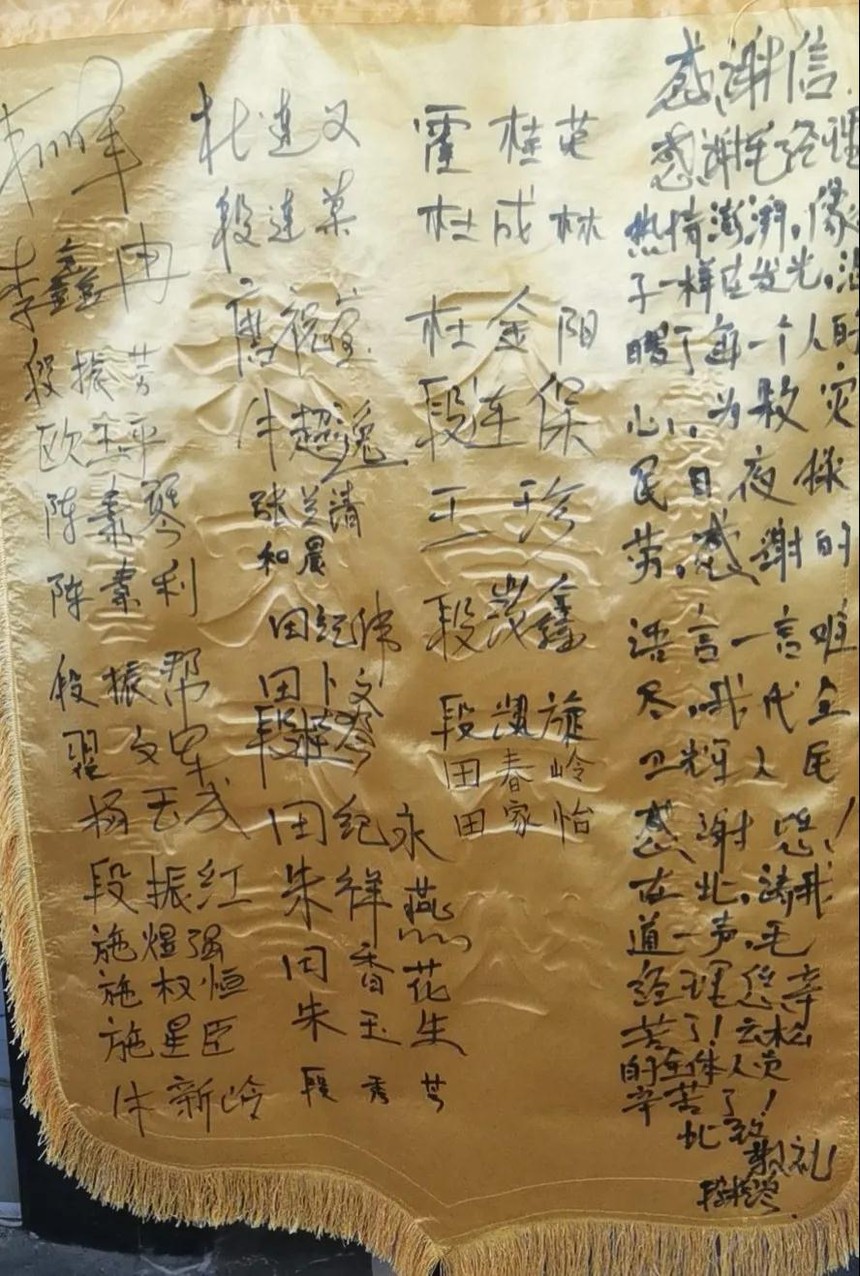 感谢信
感谢毛经理
热情澎湃,像
子一样在发光,温
暖了每一个人的
心,,为救灾
民日夜操
劳,感谢的
语言一言难
尽,我代全
卫辉人民
感谢您!
在此,请我
道一声,毛
经理您辛
苦了!云松
的全体人员
辛苦了!
此致
敬礼
段振
霍桂英
杜成林
杜金阳
段连保
王珍
段茂鑫
段凯旋
田春岭
田家怡
杜连义
段连荣
牛超逸
张兰清
和晨
田纪伟
田卜文
段
田纪永
朱祥燕
田香花
朱玉生
段秀芳
峰
李鑫冉
段振芳
欧玉平
陈素琴
陈素利
段振帮
翟文军
杨玉成
段振红
施煜强
施权恒
施星臣
牛新岭